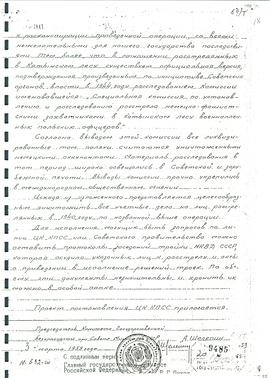 к расконспирации проведенной операции, со всеми
нежелательными для нашего государства последстви-
ями. Тем более, что в отношении расстрелянных в
Катынском лесу существует официальная версия,
подтвержденная произведенным по инициативе Советских
органов власти в 1944 году расследованием Комиссии
именовавшейся: "Специальная комиссия по установ-
лению и расследованию расстрела немецко-фашист-
скими захватчиками в Катынском лесу военно-
пленных польских офицеров".
Согласно выводам этой комиссии все ликвиди-
рованные там поляки считаются уничтоженными
немецкими оккупантами. Материалы расследования в
тот период широко освещались в Советской и зару-
бежной печати. Выводы комиссии прочно укрепились
в международном общественном мнении.
Исходя из изложенного представляется целесообраз-
ным уничтожить все учетные дела на лиц, расстре-
лянных в 1940 году по названной выше операции.
Для исполнения могущих быть запросов по ли-
нии ЦК КПСС или Советского правительства можно
оставить протоколы заседаний тройки НКВД СССР,
которая осудила указанных лиц к расстрелу и акты
о приведении в исполнение решений троек. По
объему эти документы незначительны и хранить их
можно в особой папке.
Проект постановления ЦК КПСС прилагается.
Председатель Комитета государственной
безопасности при Совете Министров СССР А. Шелепин
3 марта 1959 года
9485
С подлинным верно
Главный государственный
Российской Федерации